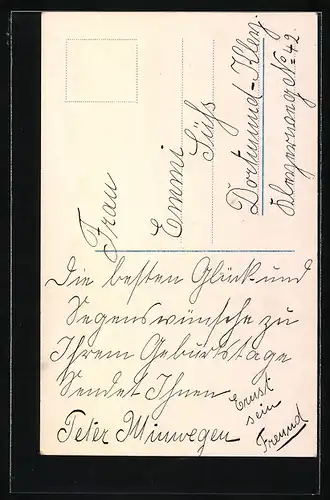 Frau
Emmi
Süß
Dortmund-Kley.
No 42.
Die besten Glück und
Segenswünsche zu
Ihrem Geburtstage
Sendet Ihnen
Peter Minwegen
Ernst
sein
Freund